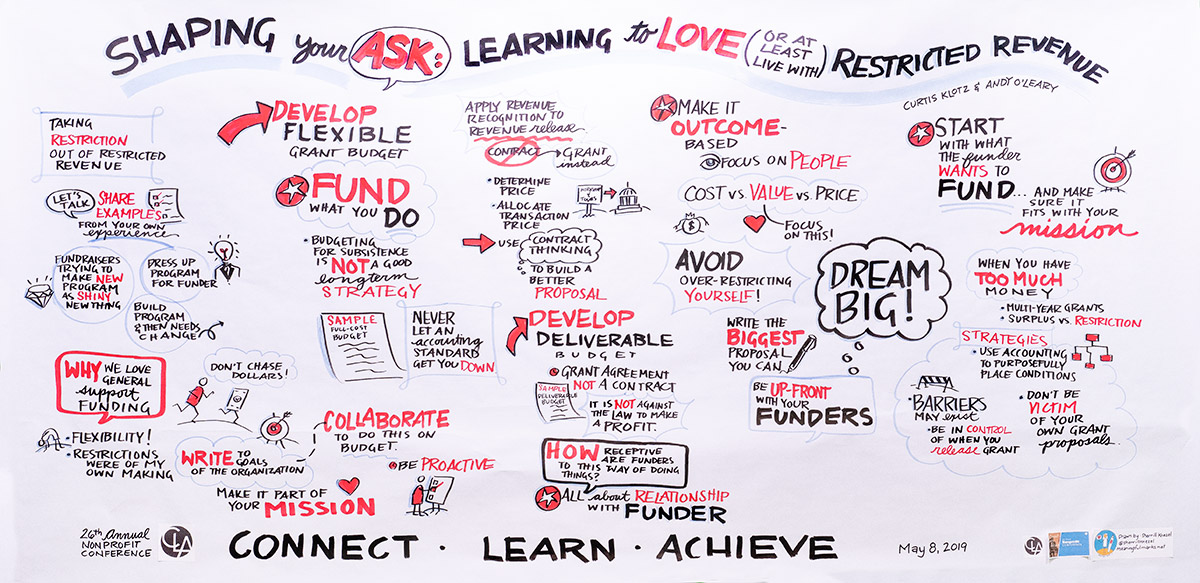 SHAPING your ASK: LEARNING to LOVE (OR AT LEAST LIVE WITH) RESTRICTED REVENUE
CURTIS KLOTZ & ANDY O'LEARY
TAKING
RESTRICTION
OUT OF RESTRICTED
REVENUE
LET'S
TALK
SHARE
EXAMPLES
FROM YOUR OWN
experience
FUNDRAISERS
TRYING TO
MAKE NEW
PROGRAM
AS SHINY
NEW THING
DRESS UP
PROGRAM
FOR FUNDER
BUILD
PROGRAM
& THEN NEEDS
CHANGE
WHY WE LOVE
GENERAL
support
FUNDING
• FLEXIBILITY!
• RESTRICTIONS
WERE OF MY
OWN MAKING
DON'T CHASE
DOLLARS!
WRITE TO
GOALS
OF THE ORGANIZATION
MAKE IT PART OF
YOUR MISSION
DEVELOP
FLEXIBLE
GRANT BUDGET
FUND
WHAT YOU DO
• BUDGETING
FOR SUBSISTENCE
IS NOT A GOOD
longterm
STRATEGY
SAMPLE
FULL-COST
BUDGET
NEVER
LET AN
accounting
STANDARD
GET YOU DOWN
COLLABORATE
TO DO THIS ON
BUDGET.
BE PROACTIVE
APPLY REVENUE
RECOGNITION TO
REVENUE release
CONTRACT → GRANT
instead
• DETERMINE
PRICE
• ALLOCATE
TRANSACTION
PRICE
USE CONTRACT
THINKING
TO BUILD A
BETTER
PROPOSAL
DEVELOP
DELIVERABLE
BUDGET
GRANT AGREEMENT
NOT A CONTRACT
SAMPLE
DELIVERABLE
BUDGET
IT IS NOT AGAINST
THE LAW TO MAKE
A PROFIT.
HOW RECEPTIVE
ARE FUNDERS
TO THIS WAY OF DOING
THINGS?
ALL about RELATIONSHIP
WITH FUNDER
MAKE IT
OUTCOME-
BASED
FOCUS ON PEOPLE
COST vs VALUE vs PRICE
$
FOCUS
ON THIS!
AVOID
OVER-RESTRICTING
YOURSELF!
WRITE THE
BIGGEST
PROPOSAL
YOU CAN
DREAM
BIG!
BE UP-FRONT
WITH YOUR
FUNDERS
START
WITH WHAT
THE funder
WANTS TO
FUND... AND MAKE
SURE IT
FITS WITH YOUR
mission
WHEN YOU HAVE
TOO MUCH
MONEY
• MULTI-YEAR GRANTS
• SURPLUS vs. RESTRICTION
STRATEGIES
• USE ACCOUNTING
TO PURPOSEFULLY
PLACE CONDITIONS
• BARRIERS
MAY exist
• BE IN CONTROL
OF WHEN YOU
release GRANT
• DON'T BE
VICTIM
OF YOUR
OWN GRANT
proposals
26th Annual
NONPROFIT
CONFERENCE
CLA
CONNECT · LEARN · ACHIEVE
May 8, 2019
CLA